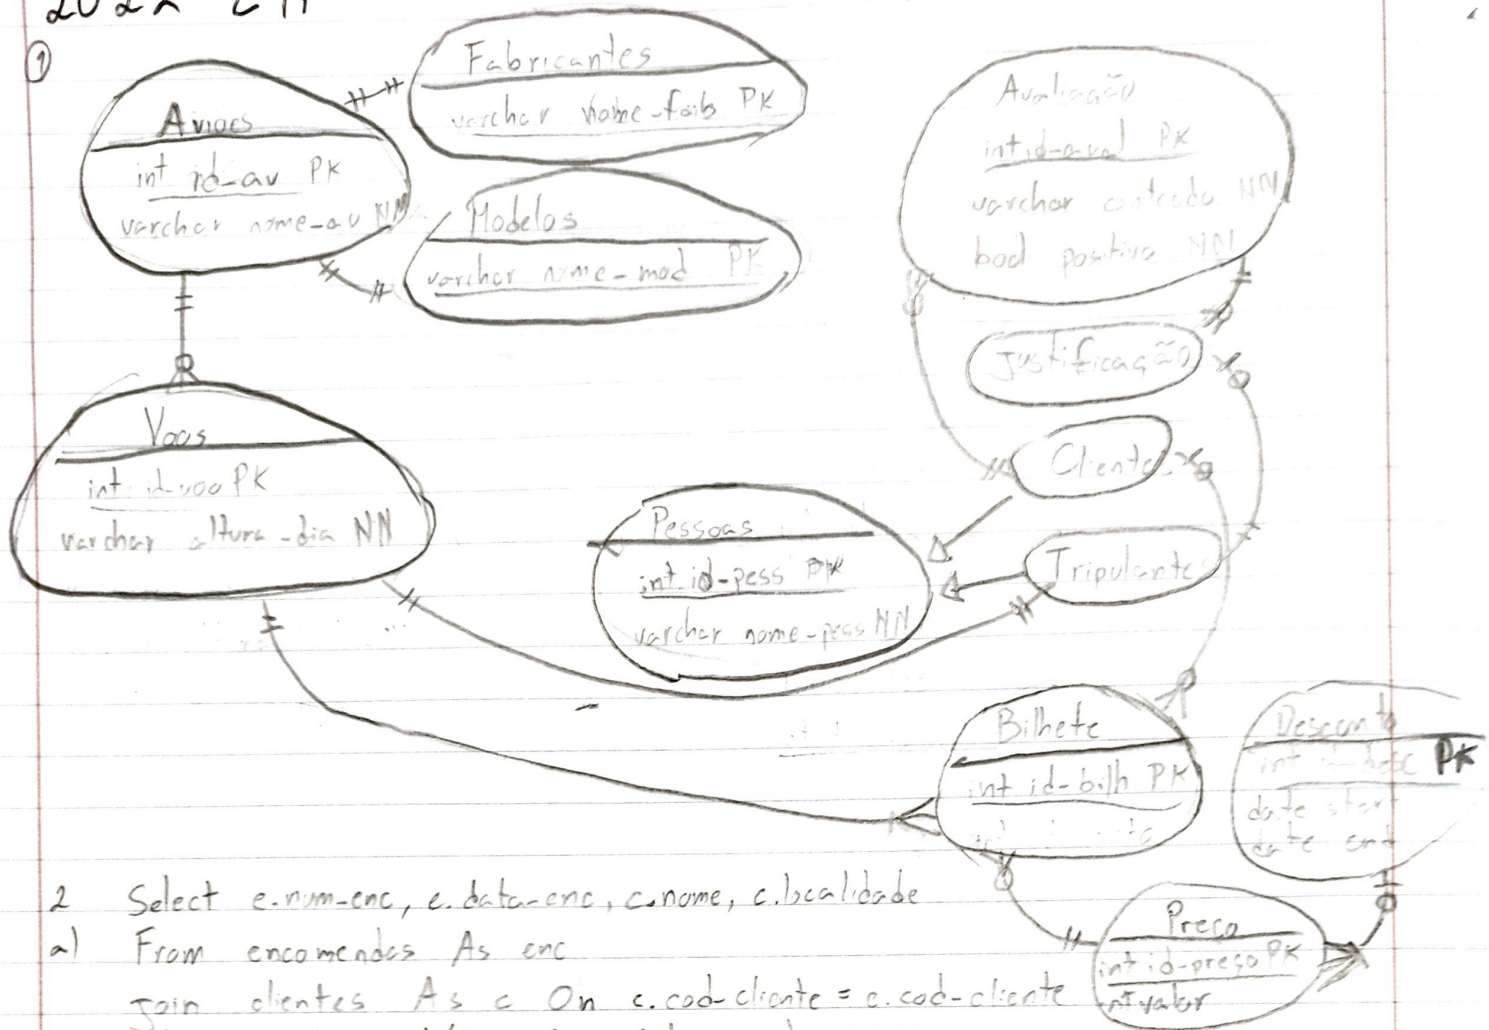 ①
Avioes
int id-av PK
varchar nome-av NN
Fabricantes
varchar nome-fab PK
Modelos
varchar nome-mod PK
Avaliação
int id-aval PK
varchar conteudo NN
bool positiva NN
Justificação
Cliente
Tripulante
Voos
int id-voo PK
varchar altura-dia NN
Pessoas
int id-pess PK
varchar nome-pess NN
Bilhete
int id-bilh PK
Desconto
int id-desc PK
date start
date end
Preço
int id-preço PK
int valor
2 Select e.num-enc, e.data-enc, c.nome, c.localidade
a) From encomendas As enc
Join clientes As c On c.cod-cliente = e.cod-cliente